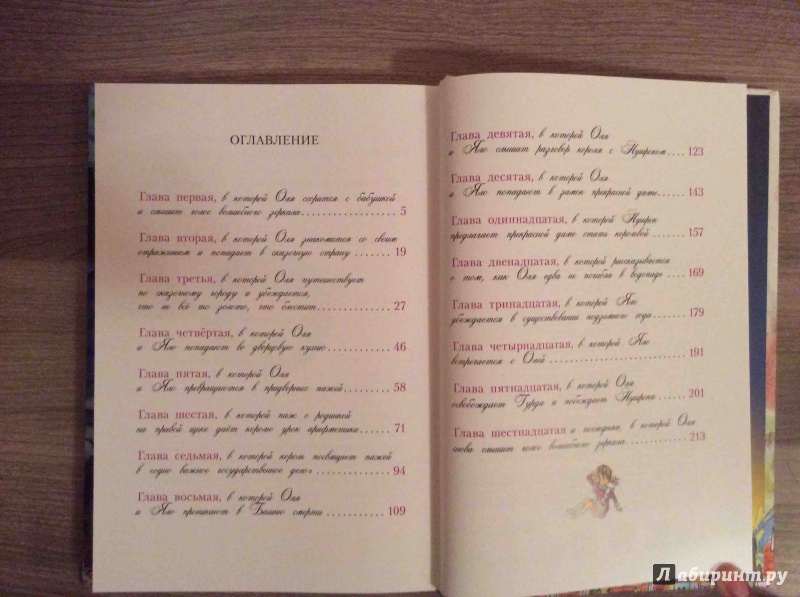 ОГЛАВЛЕНИЕ
Глава первая, в которой Оля ссорится с бабушкой
и слышит голос волшебного зеркала ..................... 5
Глава вторая, в которой Оля знакомится со своим
отражением и попадает в сказочную страну ........ 19
Глава третья, в которой Оля путешествует
по сказочному городу и убеждается,
что не всё то золото, что блестит ..................... 27
Глава четвёртая, в которой Оля
и Яло попадают во дворцовую кухню ................ 46
Глава пятая, в которой Оля
и Яло превращаются в придворных пажей ........... 58
Глава шестая, в которой паж с родинкой
на правой щеке даёт королю урок арифметики ....... 71
Глава седьмая, в которой король посвящает пажей
в одно важное государственное дело ................ 94
Глава восьмая, в которой Оля
и Яло проникают в Башню смерти ................ 109
Глава девятая, в которой Оля
и Яло слышат разговор короля с Нушроком .... 123
Глава десятая, в которой Оля
и Яло попадают в замок прекрасной дамы ....... 143
Глава одиннадцатая, в которой Нушрок
предлагает прекрасной даме стать королевой ....... 157
Глава двенадцатая, в которой рассказывается
о том, как Оля едва не погибла в водопаде ....... 169
Глава тринадцатая, в которой Яло
убеждается в существовании подземного хода ....... 179
Глава четырнадцатая, в которой Яло
встречается с Олей ..................... 191
Глава пятнадцатая, в которой Оля
освобождает Гурда и побеждает Нушрока ....... 201
Глава шестнадцатая и последняя, в которой Оля
снова слышит голос волшебного зеркала ............ 213
Лабиринт.ру